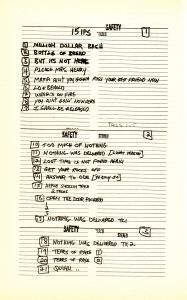 SAFETY
15 IPS 1
1 MILLION DOLLAR BASH
2 BOTTLE OF BREAD
3 BUT ITS NOT HERE
4 PLEASE MRS. HENRY
5 MAMA AIN'T YOU GONNA MISS YOUR BEST FRIEND NOW
6 LO & BEHOLD
7 WHEELS ON FIRE
8 YOU AINT GOIN' NOWHERE
9 I SHALL BE RELEASED
SAFETY
2
10 TOO MUCH OF NOTHING
11 NOTHING WAS DELIVERED
12 LOST TIME IS NOT FOUND AGAIN
13 GET YOUR ROCKS OFF
14 ANSWER TO ODE
15 APPLE SUCKLING TREE
2 TAKES
16 OPEN THE DOOR RICHARD
1
2
17 NOTHING WAS DELIVERED TK1
SAFETY
3
18 NOTHING WAS DELIVERED TK2
19 TEARS OF RAGE 1
20 TEARS OF RAGE 2
21 QUINN